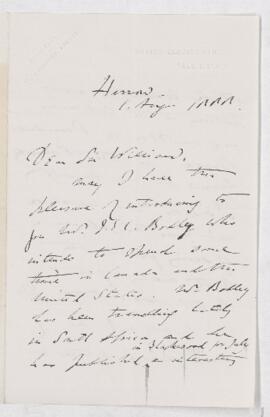 Harrow
1. Aug. 1888.
Dear Sir William,
may I have the
pleasure of introducing to
you Mr. J. E. C. Bodley who
intends to spend some
time in Canada and the
United States. Mr Bodley
has been travelling lately
in South Africa and he
in Blackwood for July
has published an interesting